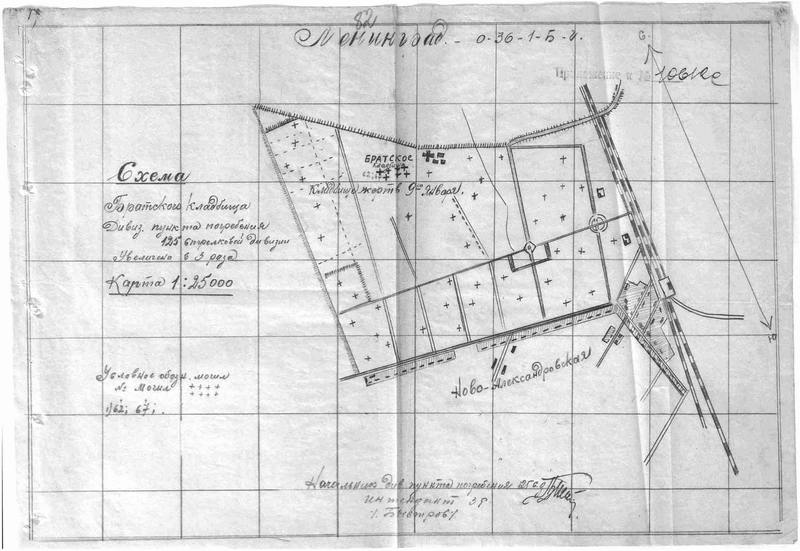 82
Ленинград. - О-36-1-Б-г.
С.
Приложение к
Схема
Братского кладбища
Дивиз. пункта погребения
125 стрелковой дивизии
Увеличено в 5 раза
Карта 1:25000
БРАТСКОЕ
кладбище
Кладбище жертв 9го Января.
Ю
Ново-Александровская
Условное обозн. могил
№ Могил
1) 62; 67;.
Начальник див. пункта погребения
Интендант 3 р
/. Быстров/